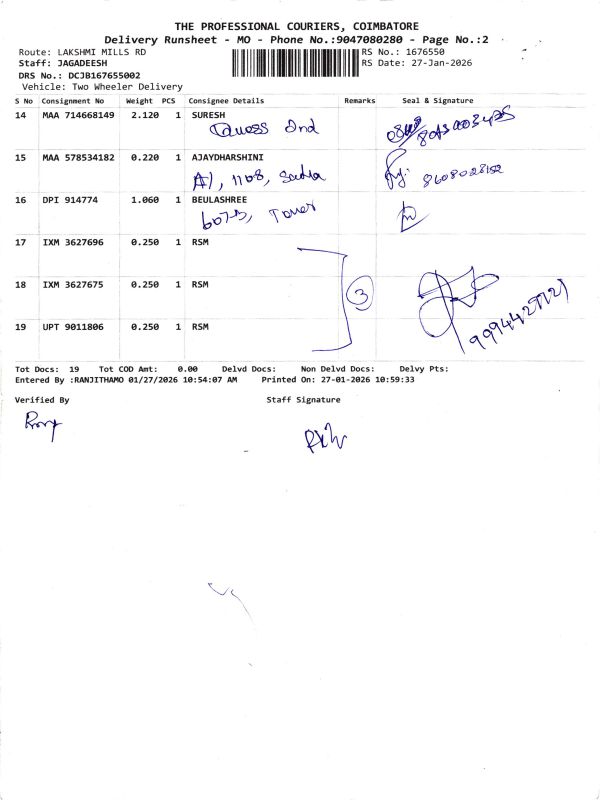 THE PROFESSIONAL COURIERS, COIMBATORE
Delivery Runsheet - MO - Phone No.:9047080280 - Page No.:2
Route: LAKSHMI MILLS RD
RS No.: 1676550
Staff: JAGADEESH
RS Date: 27-Jan-2026
DRS No.: DCJB167655002
Vehicle: Two Wheeler Delivery
S No Consignment No Weight PCS Consignee Details Remarks Seal & Signature
14 MAA 714668149 2.120 1 SURESH
15 MAA 578534182 0.220 1 AJAYDHARSHINI
A1, 1108,
8608028152
16 DPI 914774 1.060 1 BEULASHREE
607B, Tower
17 IXM 3627696 0.250 1 RSM
18 IXM 3627675 0.250 1 RSM
3
19 UPT 9011806 0.250 1 RSM
Tot Docs: 19 Tot COD Amt: 0.00 Delvd Docs: Non Delvd Docs: Delvy Pts:
Entered By :RANJITHAMO 01/27/2026 10:54:07 AM Printed On: 27-01-2026 10:59:33
Verified By Staff Signature